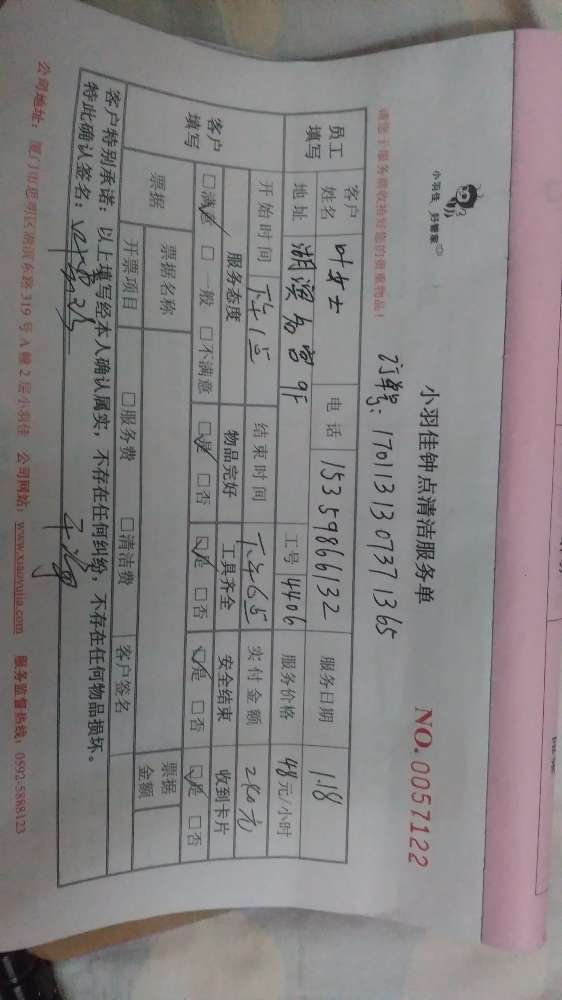 小羽佳 好管家
小羽佳钟点清洁服务单
NO. 0057122
请您于服务前收拾好您的贵重物品!
订单号: 1701131307371365
员工填写 客户姓名 叶女士 电话 15359866132 服务日期 1.18
地址 湖滨名宫9F 工号 4406 服务价格 48元/小时
客户填写 开始时间 下午1点 结束时间 下午6点 实付金额 240元
服务态度 物品完好 工具齐全 安全结束 收到卡片
□满意 □一般 □不满意 □是 □否 □是 □否 □是 □否 □是 □否
票据 票据名称 票据金额
开票项目 □服务费 □清洁费 客户签名
客户特别承诺: 以上填写经本人确认属实,不存在任何纠纷,不存在任何物品损坏。
特此确认签名:
公司地址: 厦门市思明区湖滨东路319号A幢2层小羽佳 公司网站: www.xiaoyujia.com 服务监督热线: 0592-5888123